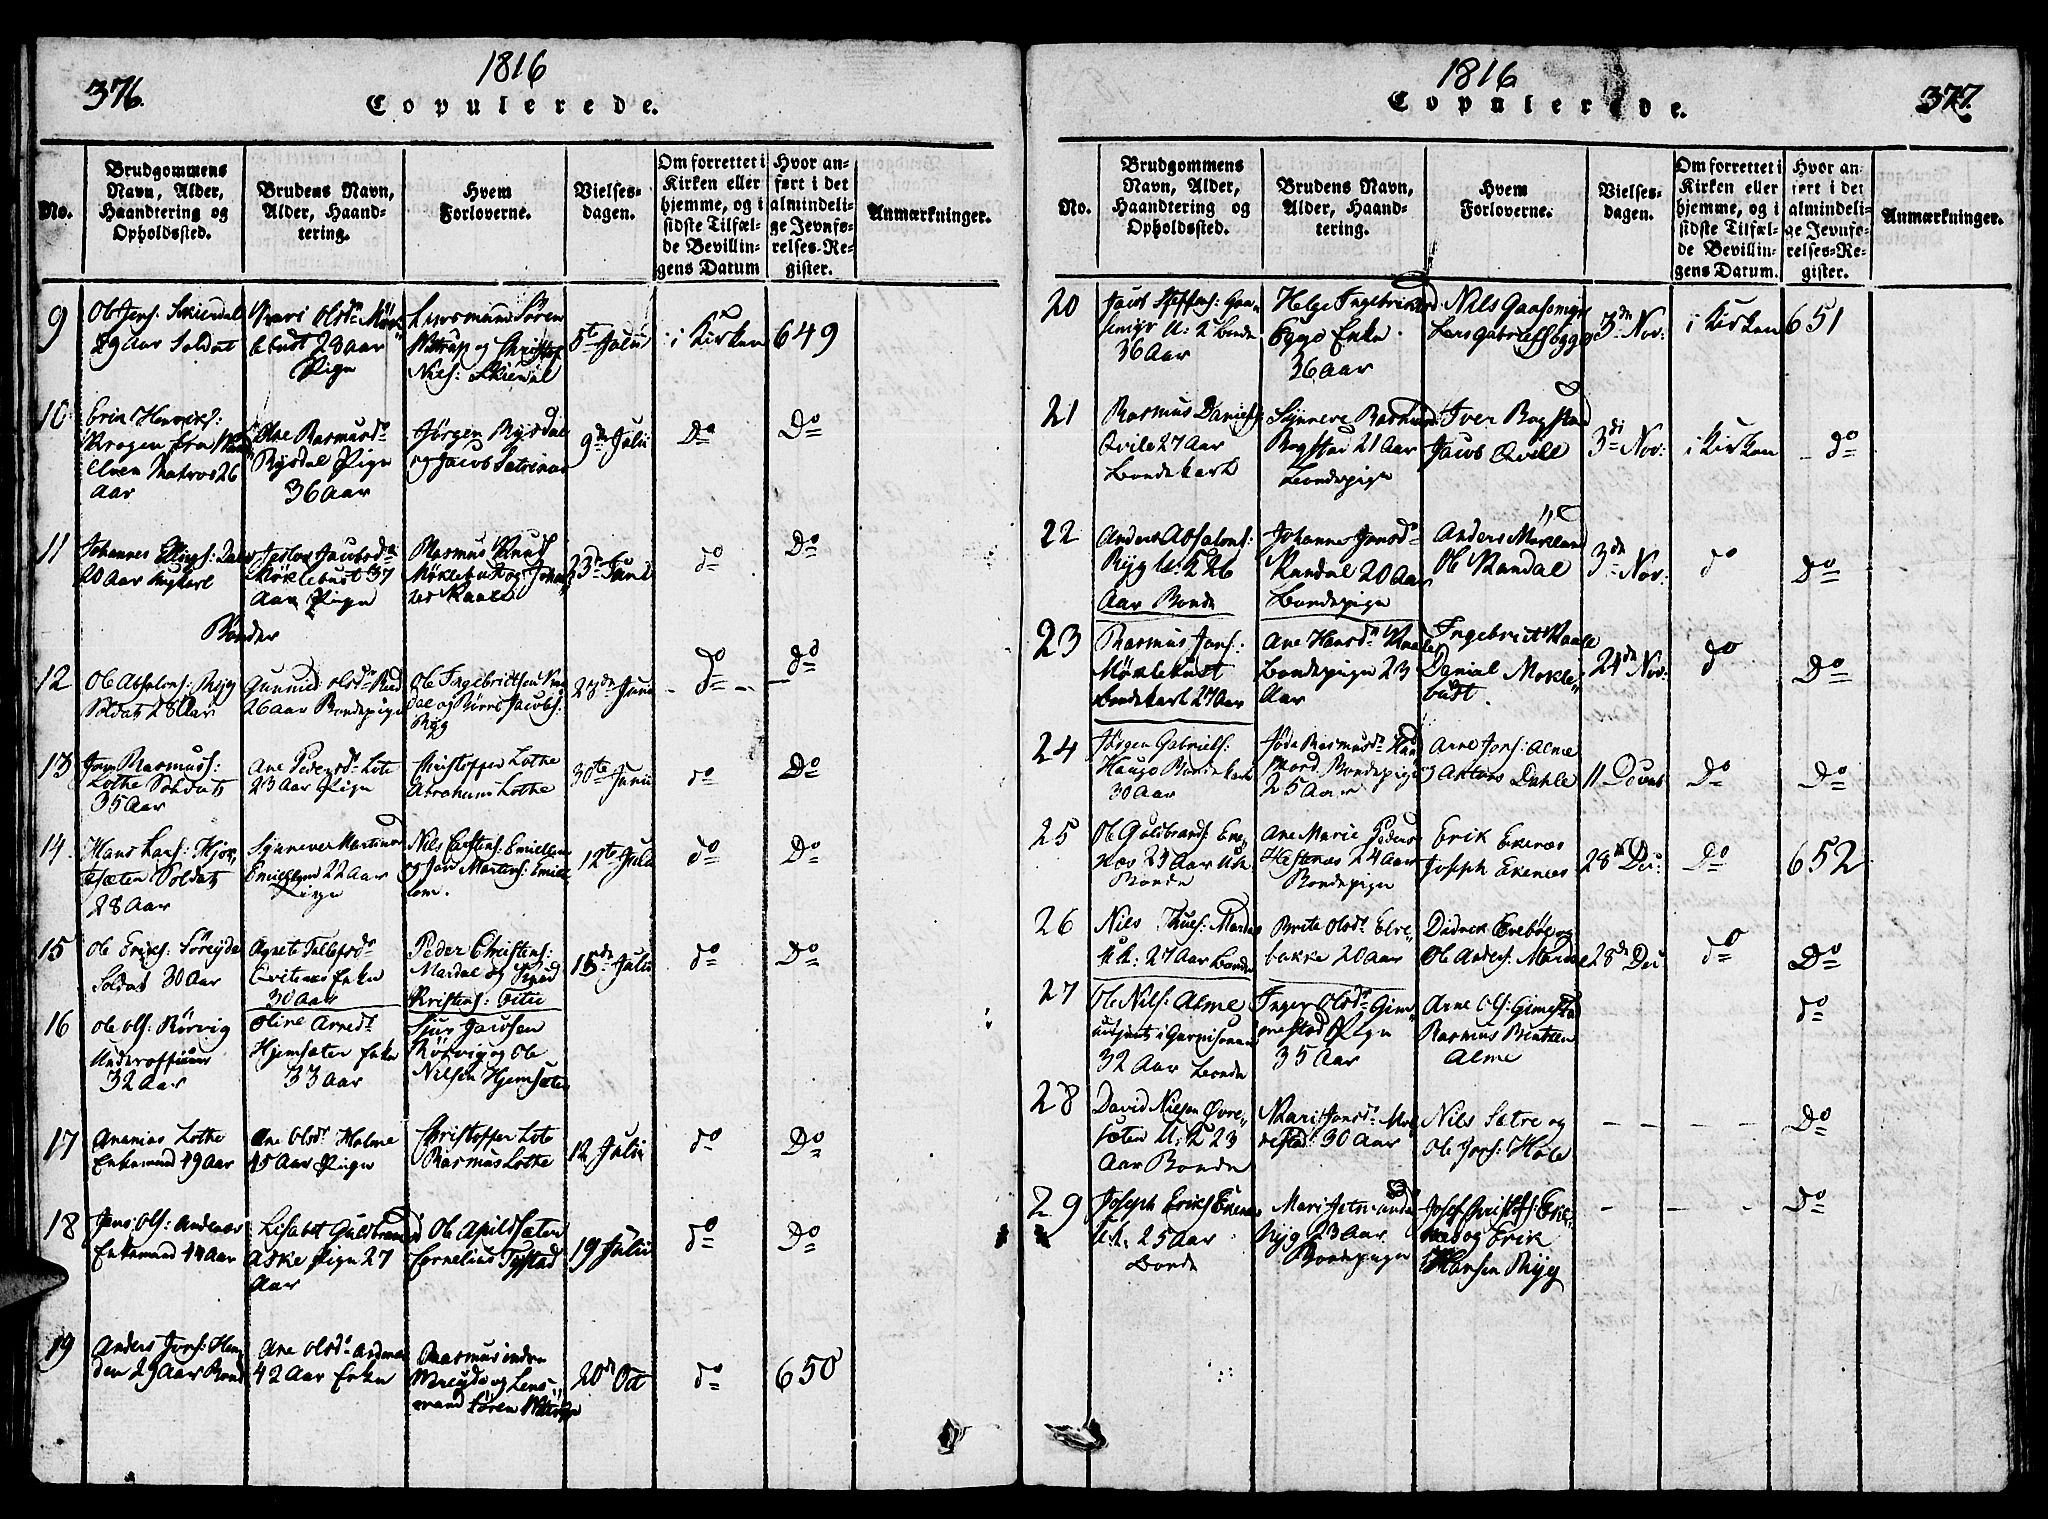 1816
376.
Copulerede.
No.
Brudgommens Navn, Alder, Haandtering og Opholdssted.
Brudens Navn, Alder, Haandtering.
Hvem Forloverne.
Vielsesdagen.
Om forrettet i Kirken eller hjemme, og i sidste Tilfælde Bevillingens Datum
Hvor anført i det almindelige Jevnførelses-Register.
Anmærkninger.
9
Ole Jens: Skierdal
29 Aar Soldat
Kari Olsd.
28 Aar
Pige
Lensmand Sören
og Christof
Nils:
5te Julii
i Kirken
649
10
Erik Henrichs:
Matros 26
Aar
Ane Rasmusd.
Rysdal Pige
36 Aar
Jörgen Rysdal
og Jacob
9de Julii
Do
Do
11
Johannes
20 Aar
Jacobsd.
Möklebust 37
Aar Pige
Rasmus Knuds
Möklebust og
23de Junii
do
Do
Bonder
12
Ole Absalons: Ryg
Soldat 28 Aar
Gunnild Olsd.
26 Aar Bondepige
Ole Ingebrichtsen
dal og Jacobs:
Ryg
28de Junii
do
do
13
Rasmus:
Lothe Soldat
35 Aar
Ane Pedersd. Lote
23 Aar Pige
Christoffer Lothe
Abraham Lothe
30te Junii
do
Do
14
Hans Lars: Hjor
sæten Soldat
28 Aar
Synnever Martins
22 Aar
Pige
Nils Carstens:
og Jon Martens:
12te Julii
do
Do
15
Ole Eriks:
Soldat 30 Aar
Agnete Tollefsd.
Enke
30 Aar
Peder Christens:
Mardal og
Kristens:
15de Julii
do
Do
16
Ole Ols: Rörvig
Underofficeer
32 Aar
Oline Arnesd.
Hjemsæter Enke
33 Aar
Sjur Jacobsen
Rörvig og Ole
Nilsen Hjemsæter
17
Ananias Lothe
Enkemand 49 Aar
Ane Olsd. Holme
45 Aar Pige
Christoffer Lote
Rasmus Lothe
12 Julii
do
Do
18
Jens Ols: Andenæs
Enkemand 44 Aar
Lisabet Guldbrand
Aske Pige 27
Aar
Ole Apildsæter
Cornelius Tystad
19 Julii
do
Do
19
Anders Jons: Hen
den 29 Aar Bonde
Ane Olsd. Andenæs
42 Aar Enke
Rasmus indre
og Lens
mand Sören
20de Oct
do
650
1816
377.
Copulerede.
No.
Brudgommens Navn, Alder, Haandtering og Opholdssted.
Brudens Navn, Alder, Haandtering.
Hvem Forloverne.
Vielsesdagen.
Om forrettet i Kirken eller hjemme, og i sidste Tilfælde Bevillingens Datum.
Hvor anført i det almindelige Jevnførelses-Register.
Anmærkninger.
20
Jacob Steffens: Gaa
Bonde
36 Aar
Helge Ingebrikts
Enke
36 Aar
Nils
Lars Gabriels
3de Nov:
i Kirken
651
21
Rasmus Daniels:
Qvile 27 Aar
Bondekarl
Synneve Rasmus
Bogstad 21 Aar
Bondepige
Iver Bogstad
Jacob Qvile
3de Nov:
i Kirken
do
22
Anders Absalons:
Ryg U: K 26
Aar Bonde
Johanne Jonsd.
Kandal 20 Aar
Bondepige
Anders
Ole Kandal
3de Nov:
do
Do
23
Rasmus Jons:
Möklebust
Bondekarl 27 Aar
Ane Hansd.
Bondepige 23
Aar
Ingebrict
Daniel Mökle
bust.
24de Nov:
do
Do
24
Jörgen Gabriels:
Haugo Bondekarl
30 Aar
Rasmusd.
Bondepige
25 Aar
Arne Jons: Alme
Dahle
11 Decemb
Do
Do
25
Ole Guldbrands: Eke
næs 24 Aar
Bonde
Ane Marie Peders
Hestenæs 24 Aar
Bondepige
Erik Ekenæs
Joseph Ekenæs
28de Dec:
Do
652
26
Nils
27 Aar Bonde
Brite Olsd. Elve
bakke 20 Aar
Didrick og
Ole Anders:
28de Dec
do
Do
27
Ole Nils: Alme
32 Aar Bonde
Inger Olsd. Gim
mestad Pige
35 Aar
Arne Ols: Gimestad
Rasmus
Alme
do
28
David Nilsen Övre
sæten U: K 23
Aar Bonde
Mari Jonsd.
30 Aar
Nils Sætre og
Ole Jons: Hole
Do
29
Joseph Eriks: Ekenæs
U.K. 25 Aar
Bonde
Mari
Ryg 23 Aar
Bondepige
og Erik
Hansen Ryg
Do